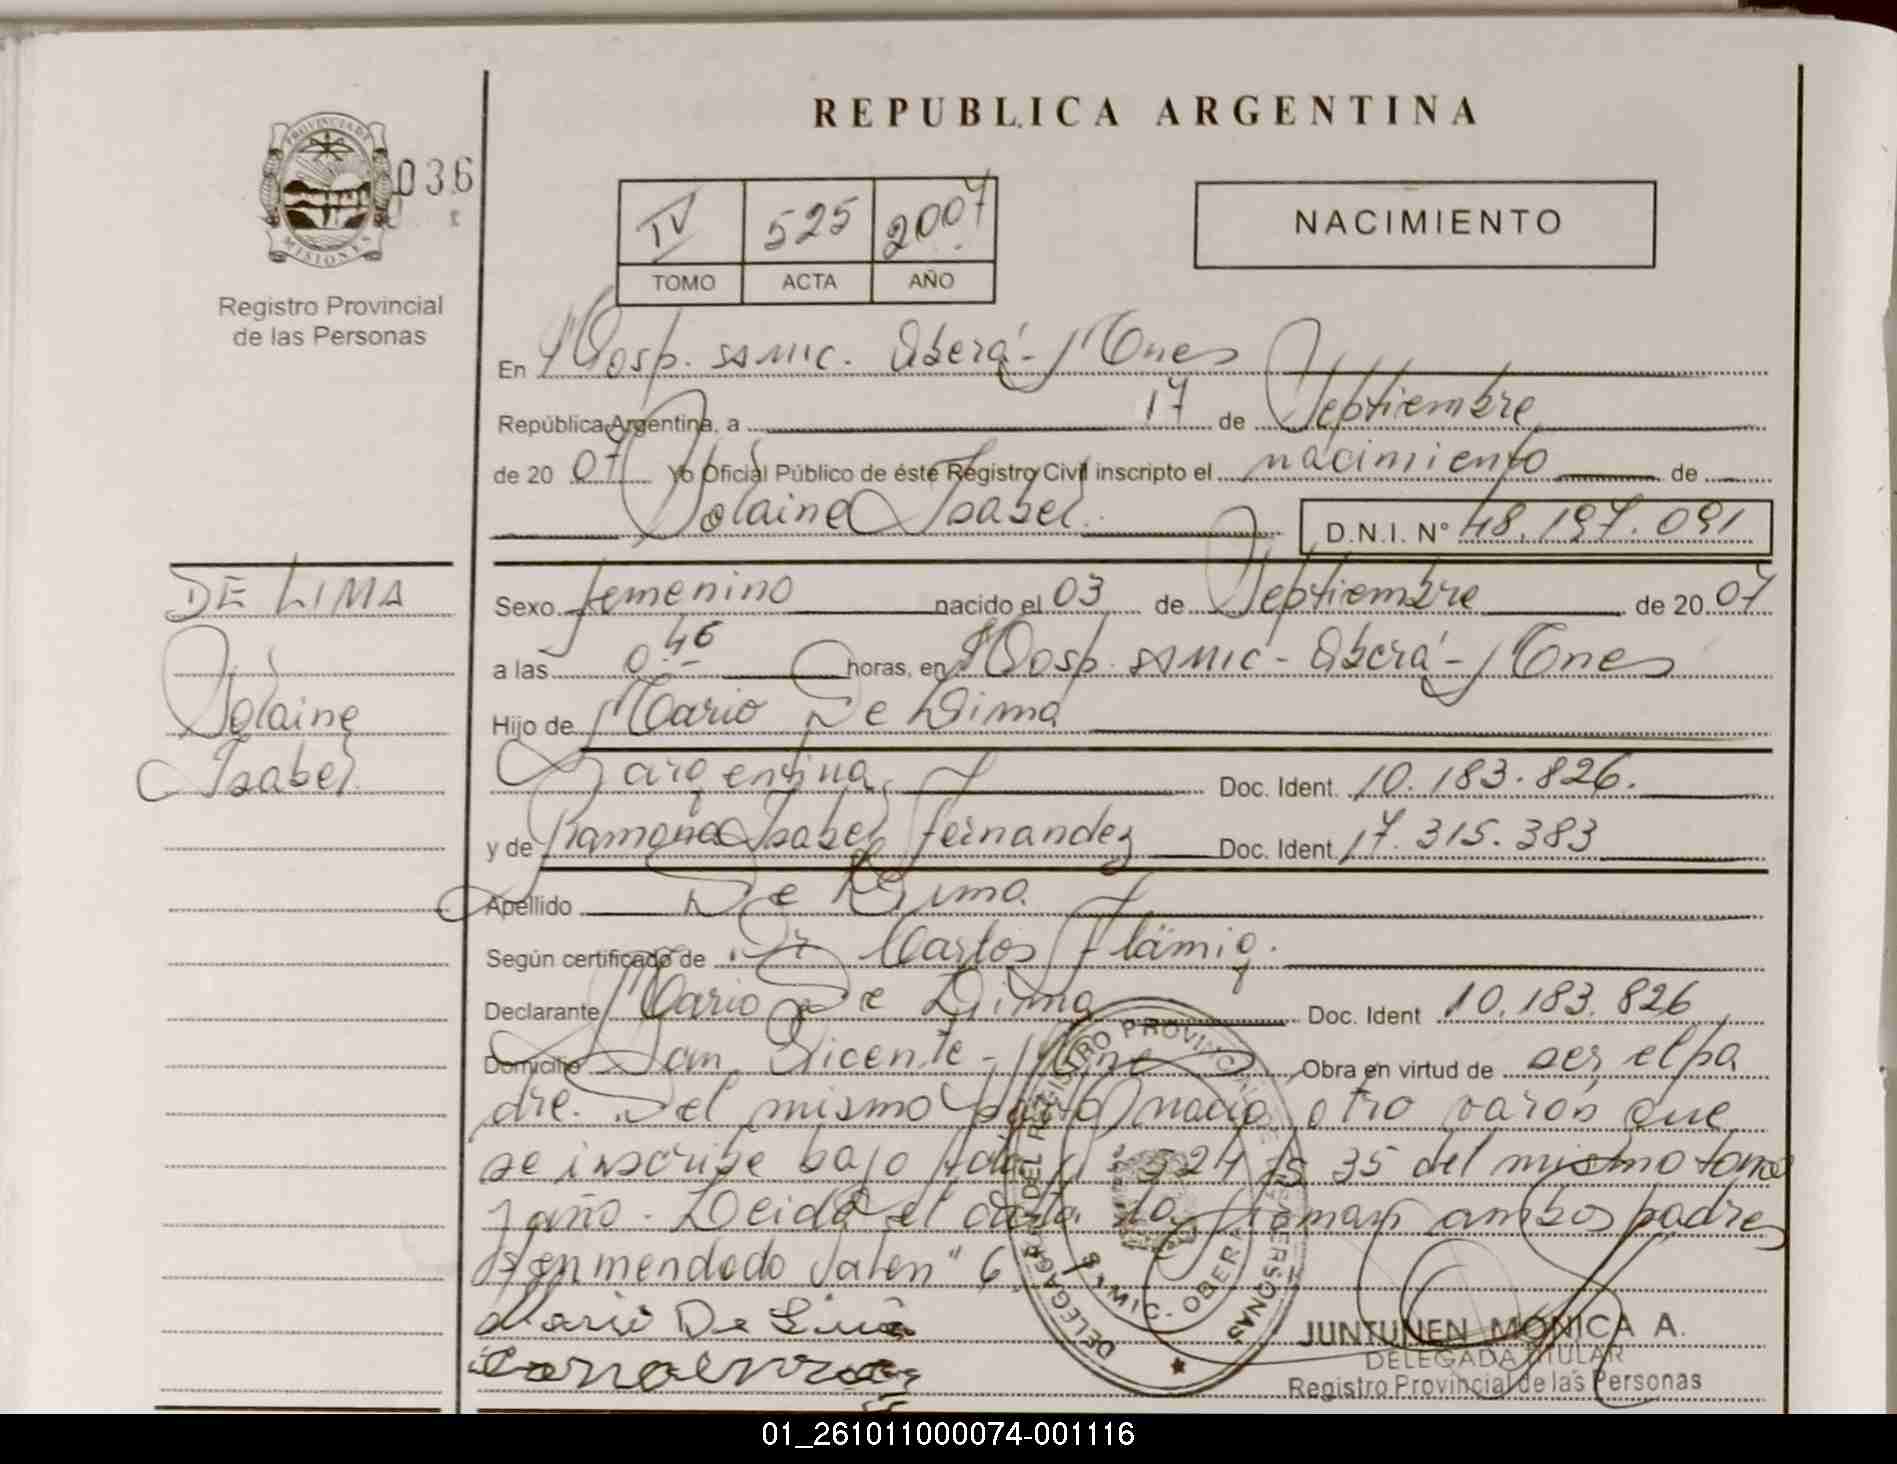 REPUBLICA ARGENTINA
PROVINCIA DE
MISIONES
036
Registro Provincial
de las Personas
IV 525 2007
TOMO ACTA AÑO
NACIMIENTO
En Hosp. SAMIC. Oberá - Mnes
República Argentina, a 17 de Septiembre
de 20 07 Yo Oficial Público de éste Registro Civil inscripto el nacimiento de
Yolaine Isabel. D.N.I. N° 48.197.091
DE LIMA
Sexo femenino nacido el 03 de Septiembre de 20 07
a las 0.46 horas, en Hosp. SAMIC - Oberá - Mnes
Yolaine
Hijo de Mario De Lima
Isabel
argentina Doc. Ident. 10.183.826.
y de Ramona Isabel Fernandez Doc. Ident. 17.315.383
Apellido De Lima
Según certificado de Dr Carlos Flämig.
Declarante Mario De Lima Doc. Ident 10.183.826
Domicilio San Vicente - Mnes Obra en virtud de ser el pa
dre. Del mismo parto nació otro varón que
se inscribe bajo 524 35 del mismo tomo
y año - Leida el acta la firman ambos padres
enmendado valen "6"
Mario De Lima
DELEGADA DEL REGISTRO PROVINCIAL DE LAS PERSONAS
S.A.M.I.C. - OBERA
JUNTUNEN MONICA A.
DELEGADA TITULAR
Registro Provincial de las Personas
01_261011000074-001116